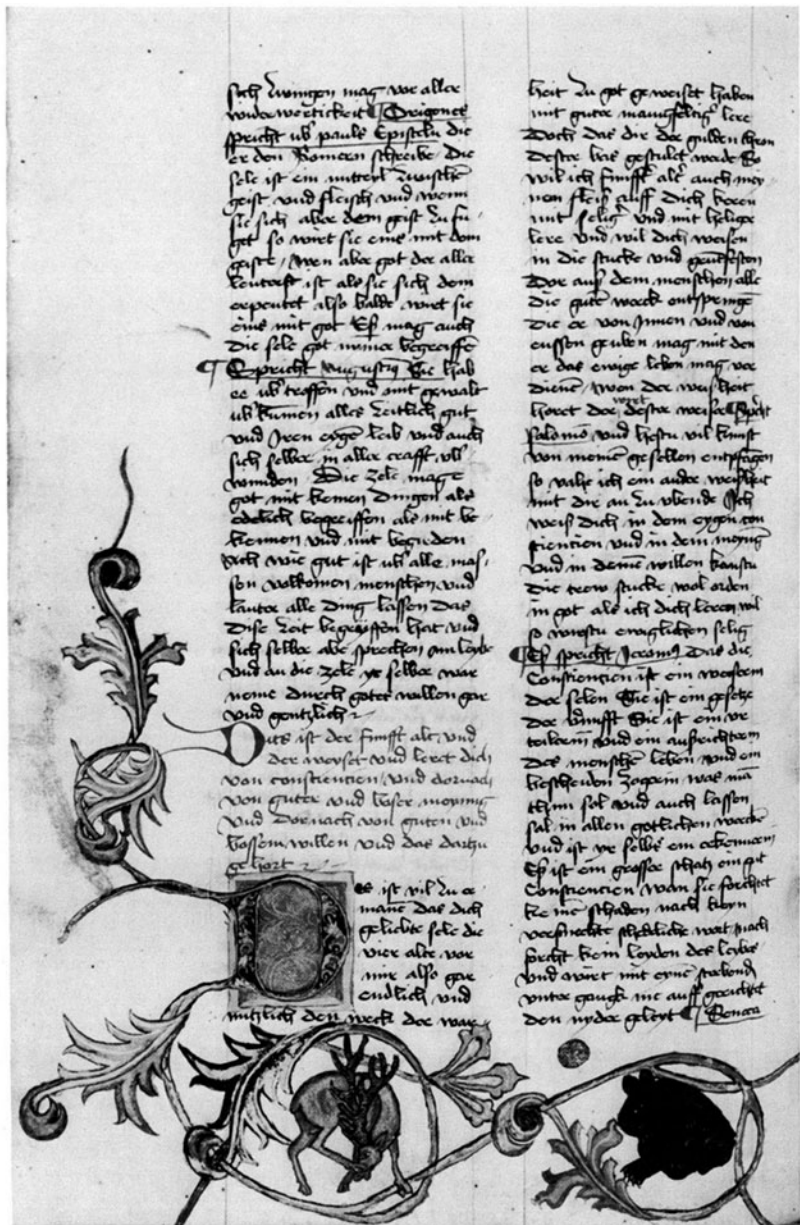 sich zwingen mag vor aller
wider wertickeit Origenes
spricht ub' pauls Episteln die
er den Romern schreibe Die
sele ist ein mitterl zwische
geist und fleisch und wenn
sie sich aber dem geist zu fu
get so wirt sie eins mit dem
geiste / wen aber got der aller
leuterst ist als sie sich dem
erpeutet also balde wirt sie
eins mit got Es mag auch
die sele got nimer begreiffe
Spricht Augustin9 Sie hab
er ub' troffen und mit gewalt
ub' kumen alles zeitlich gut
und Iren eyge leib und auch
sich selber in aller crafft ub'
wunden Die zele mage
got mit keinen dingen als
edelich begreiffen als mit be
kennen und mit begirden
Ach wie gut ist ub' alle mas
sen volkomen menschen und
lauter alle ding lassen das
dise zeit begriffen hat und
sich selber abe sprechen am leybe
und an die zele yr selber war
neme durch gotes willen gar
und gentzlich
Dits ist der funfft alt' und
der weyset und leret dich
von consciencien und dornach
von guter und boser meynung
und dornach von guten und
bossem willen und das dartzu
gehort
es ist vil zu er
mane das dich
geliebte sele die
vier alter vor
mir also gar
endlich und
nutzlich den weck der war
heit zu got geweiset haben
mit guter manigfeltig' lere
Doch das dir der gulden thron
dester bas gestulet werde So
wil ich funfft' alt' auch mey
nen fleis auff dich keren
mit selig' und mit heliger
lere und wil dich weisen
in die stucke und
Dor aus dem menschen alle
die gute werck entspringe
die er von Innen und von
eussen geuben mag mit den
er das ewige leben mag ver
diene / Wen der weisheit
horet der wirt dester weiser Spricht
Salomo und hestu vil kunst
von meine gesellen entpfangen
so vahe ich ein ander weisheit
mit dir an zu ubende Ich
weis dich in dem eygen con
sciencien und in dem meynug
und in deine willen kanstu
die trew stucke wol orden
in got als ich dich leren wil
so wirstu ewiglichen selig
Es spricht Jeronim9 Das die
Consciencien ist ein weiserin
der selen Sie ist ein gesetze
der vernufft Sie ist ein vr
teilerin und ein aufrichterin
des mensche leben und ein
bescheiden zogerin was ma
thun sol und auch lassen
sal in allen gotlichen wercke
und ist yr selbs ein erkennerin
Es ist ein grosser schatz ein gut
Consciencien wan sie forchtet
keine schaden nach keyn
versmechte schedliche wort nach
forcht kein leyden des leybes
und wirt mit eyne sterbend
unter gangk nie auff gerichtet
den nyder geleyt Seneca